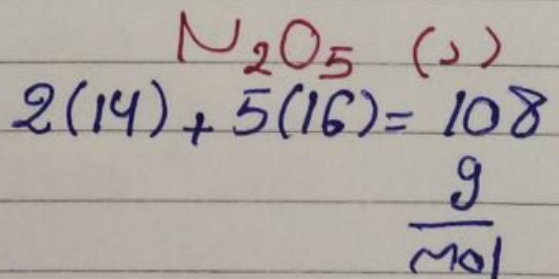 N₂O₅ (s)
2(14) + 5(16) = 108
g
mol